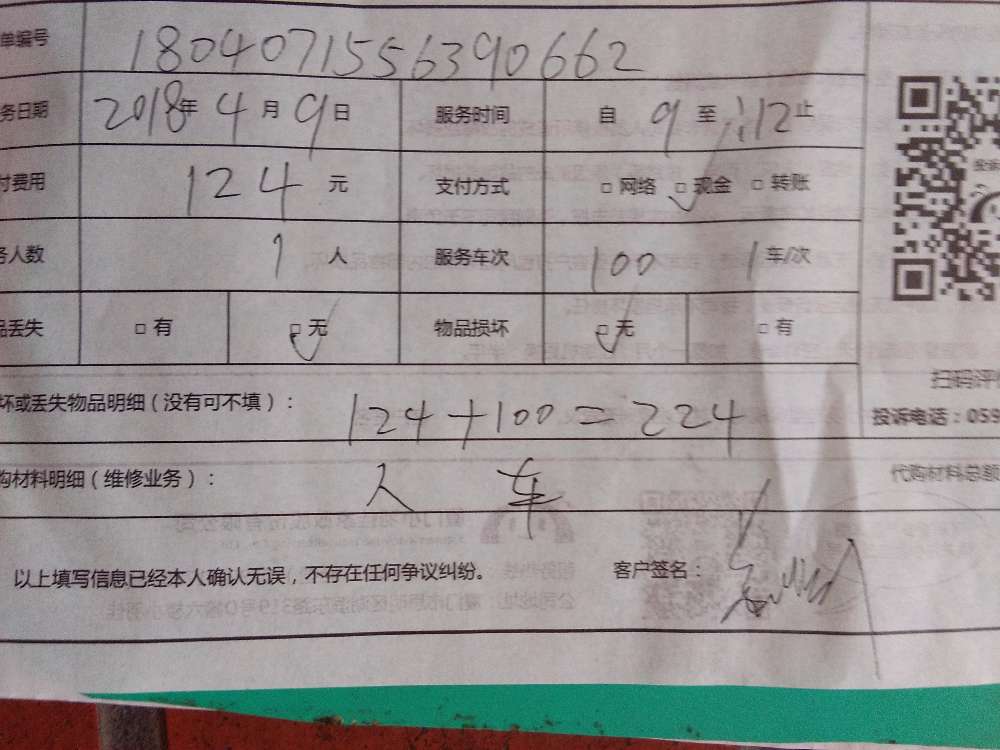 单编号 1804071556390662
务日期 2018年 4月 9日 服务时间 自 9 至 12 止
付费用 124 元 支付方式 □ 网络 □ 现金 □ 转账
务人数 1 人 服务车次 100 1 车/次
品丢失 □ 有 □ 无 物品损坏 □ 无 □ 有
扫码评
坏或丢失物品明细(没有可不填): 124+100=224
投诉电话:059
购材料明细(维修业务): 人 车
代购材料总额
以上填写信息已经本人确认无误,不存在任何争议纠纷。 客户签名: